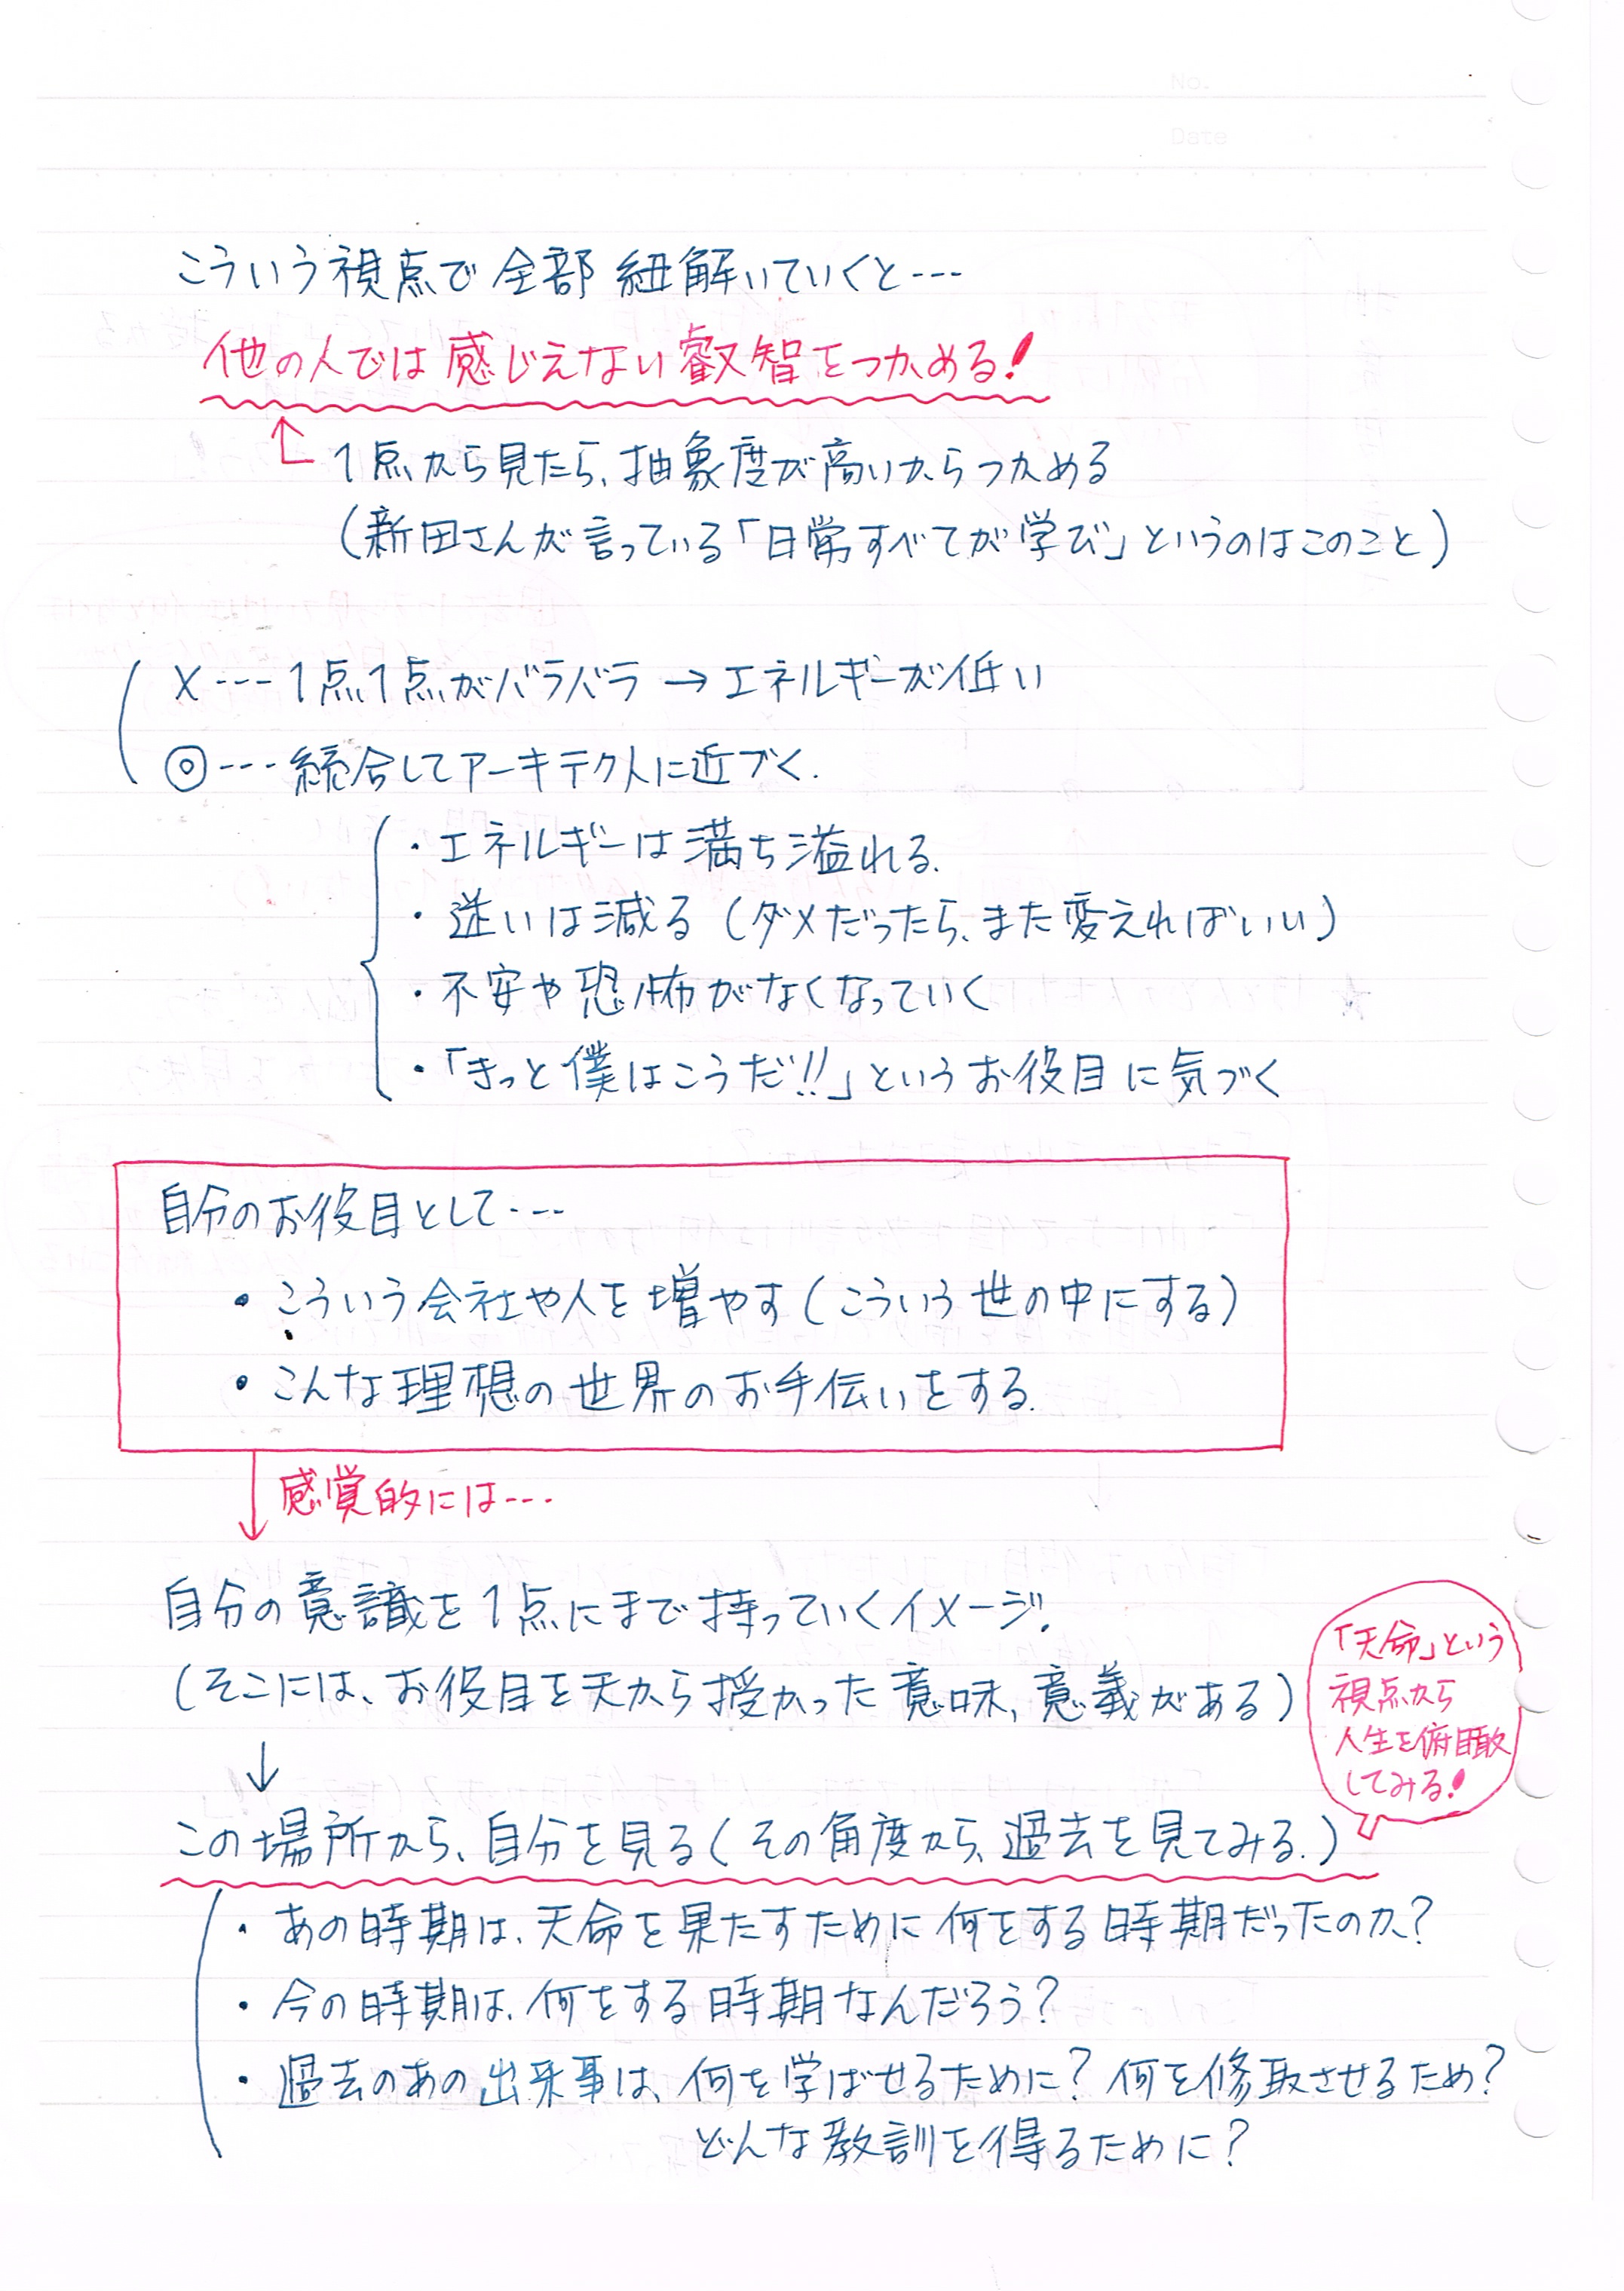 No.
Date
こういう視点で全部紐解いていくと---
他の人では感じえない叡智をつかめる!
1点から見たら、抽象度が高いからつかめる
(新田さんが言っている「日常すべてが学び」というのはこのこと)
×---1点1点がバラバラ→エネルギーが低い
◎---統合してアーキテクトに近づく.
・エネルギーは満ち溢れる.
・迷いは減る(ダメだったら、また変えればいい)
・不安や恐怖がなくなっていく
・「きっと僕はこうだ!!」というお役目に気づく
自分のお役目として---
・こういう会社や人を増やす(こういう世の中にする)
・こんな理想の世界のお手伝いをする.
↓感覚的には---
自分の意識を1点にまで持っていくイメージ.
(そこには、お役目を天から授かった意味,意義がある)
↓
「天命」という
視点から
人生を俯瞰
してみる!
この場所から、自分を見る(その角度から、過去を見てみる.)
・あの時期は、天命を果たすために何をする時期だったのか?
・今の時期は、何をする時期なんだろう?
・過去のあの出来事は、何を学ばせるために?何を修取させるため?
どんな教訓を得るために?